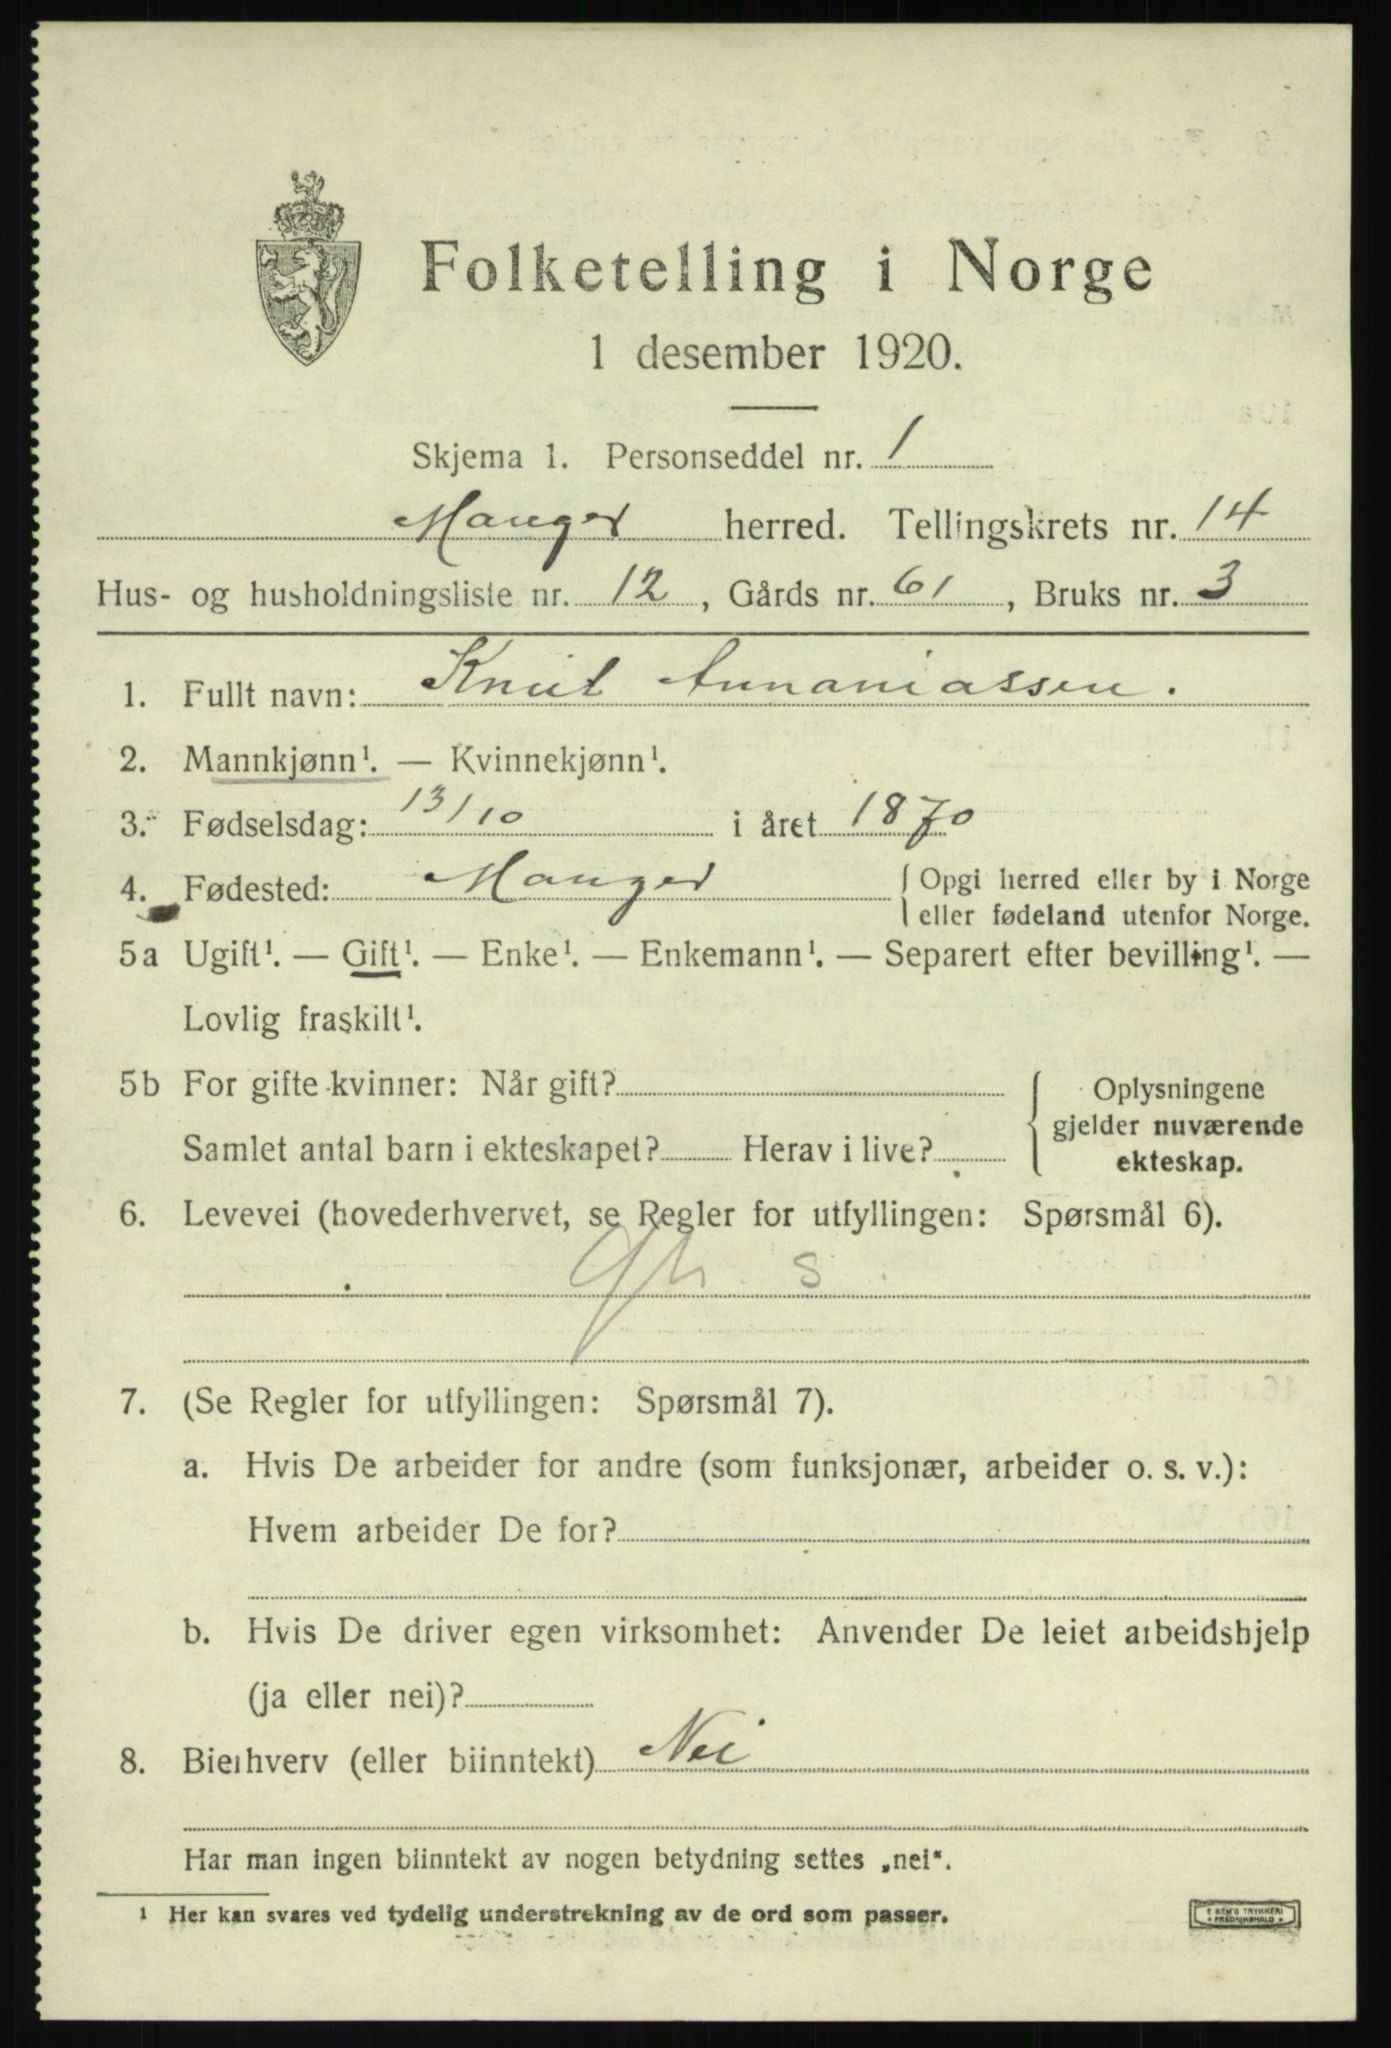 Folketelling i Norge
1 desember 1920.
Skjema 1. Personseddel nr. 1
Manger herred. Tellingskrets nr. 14
Hus- og husholdningsliste nr. 12, Gårds nr. 61, Bruks nr. 3
1. Fullt navn: Knut Annaniassen.
2. Mannkjønn¹. — Kvinnekjønn¹.
3. Fødselsdag: 13/10 i året 1870
4. Fødested: Manger { Opgi herred eller by i Norge
eller fødeland utenfor Norge.
5a Ugift¹. — Gift¹. — Enke¹. — Enkemann¹. — Separert efter bevilling¹. —
Lovlig fraskilt¹.
5b For gifte kvinner: Når gift?
Samlet antal barn i ekteskapet? Herav i live?
{ Oplysningene
gjelder nuværende
ekteskap.
6. Levevei (hovederhvervet, se Regler for utfyllingen: Spørsmål 6).
s
7. (Se Regler for utfyllingen: Spørsmål 7).
a. Hvis De arbeider for andre (som funksjonær, arbeider o. s. v.):
Hvem arbeider De for?
b. Hvis De driver egen virksomhet: Anvender De leiet arbeidshjelp
(ja eller nei)?
8. Bierhverv (eller biinntekt) Nei
Har man ingen biinntekt av nogen betydning settes „nei“.
¹ Her kan svares ved tydelig understrekning av de ord som passer.